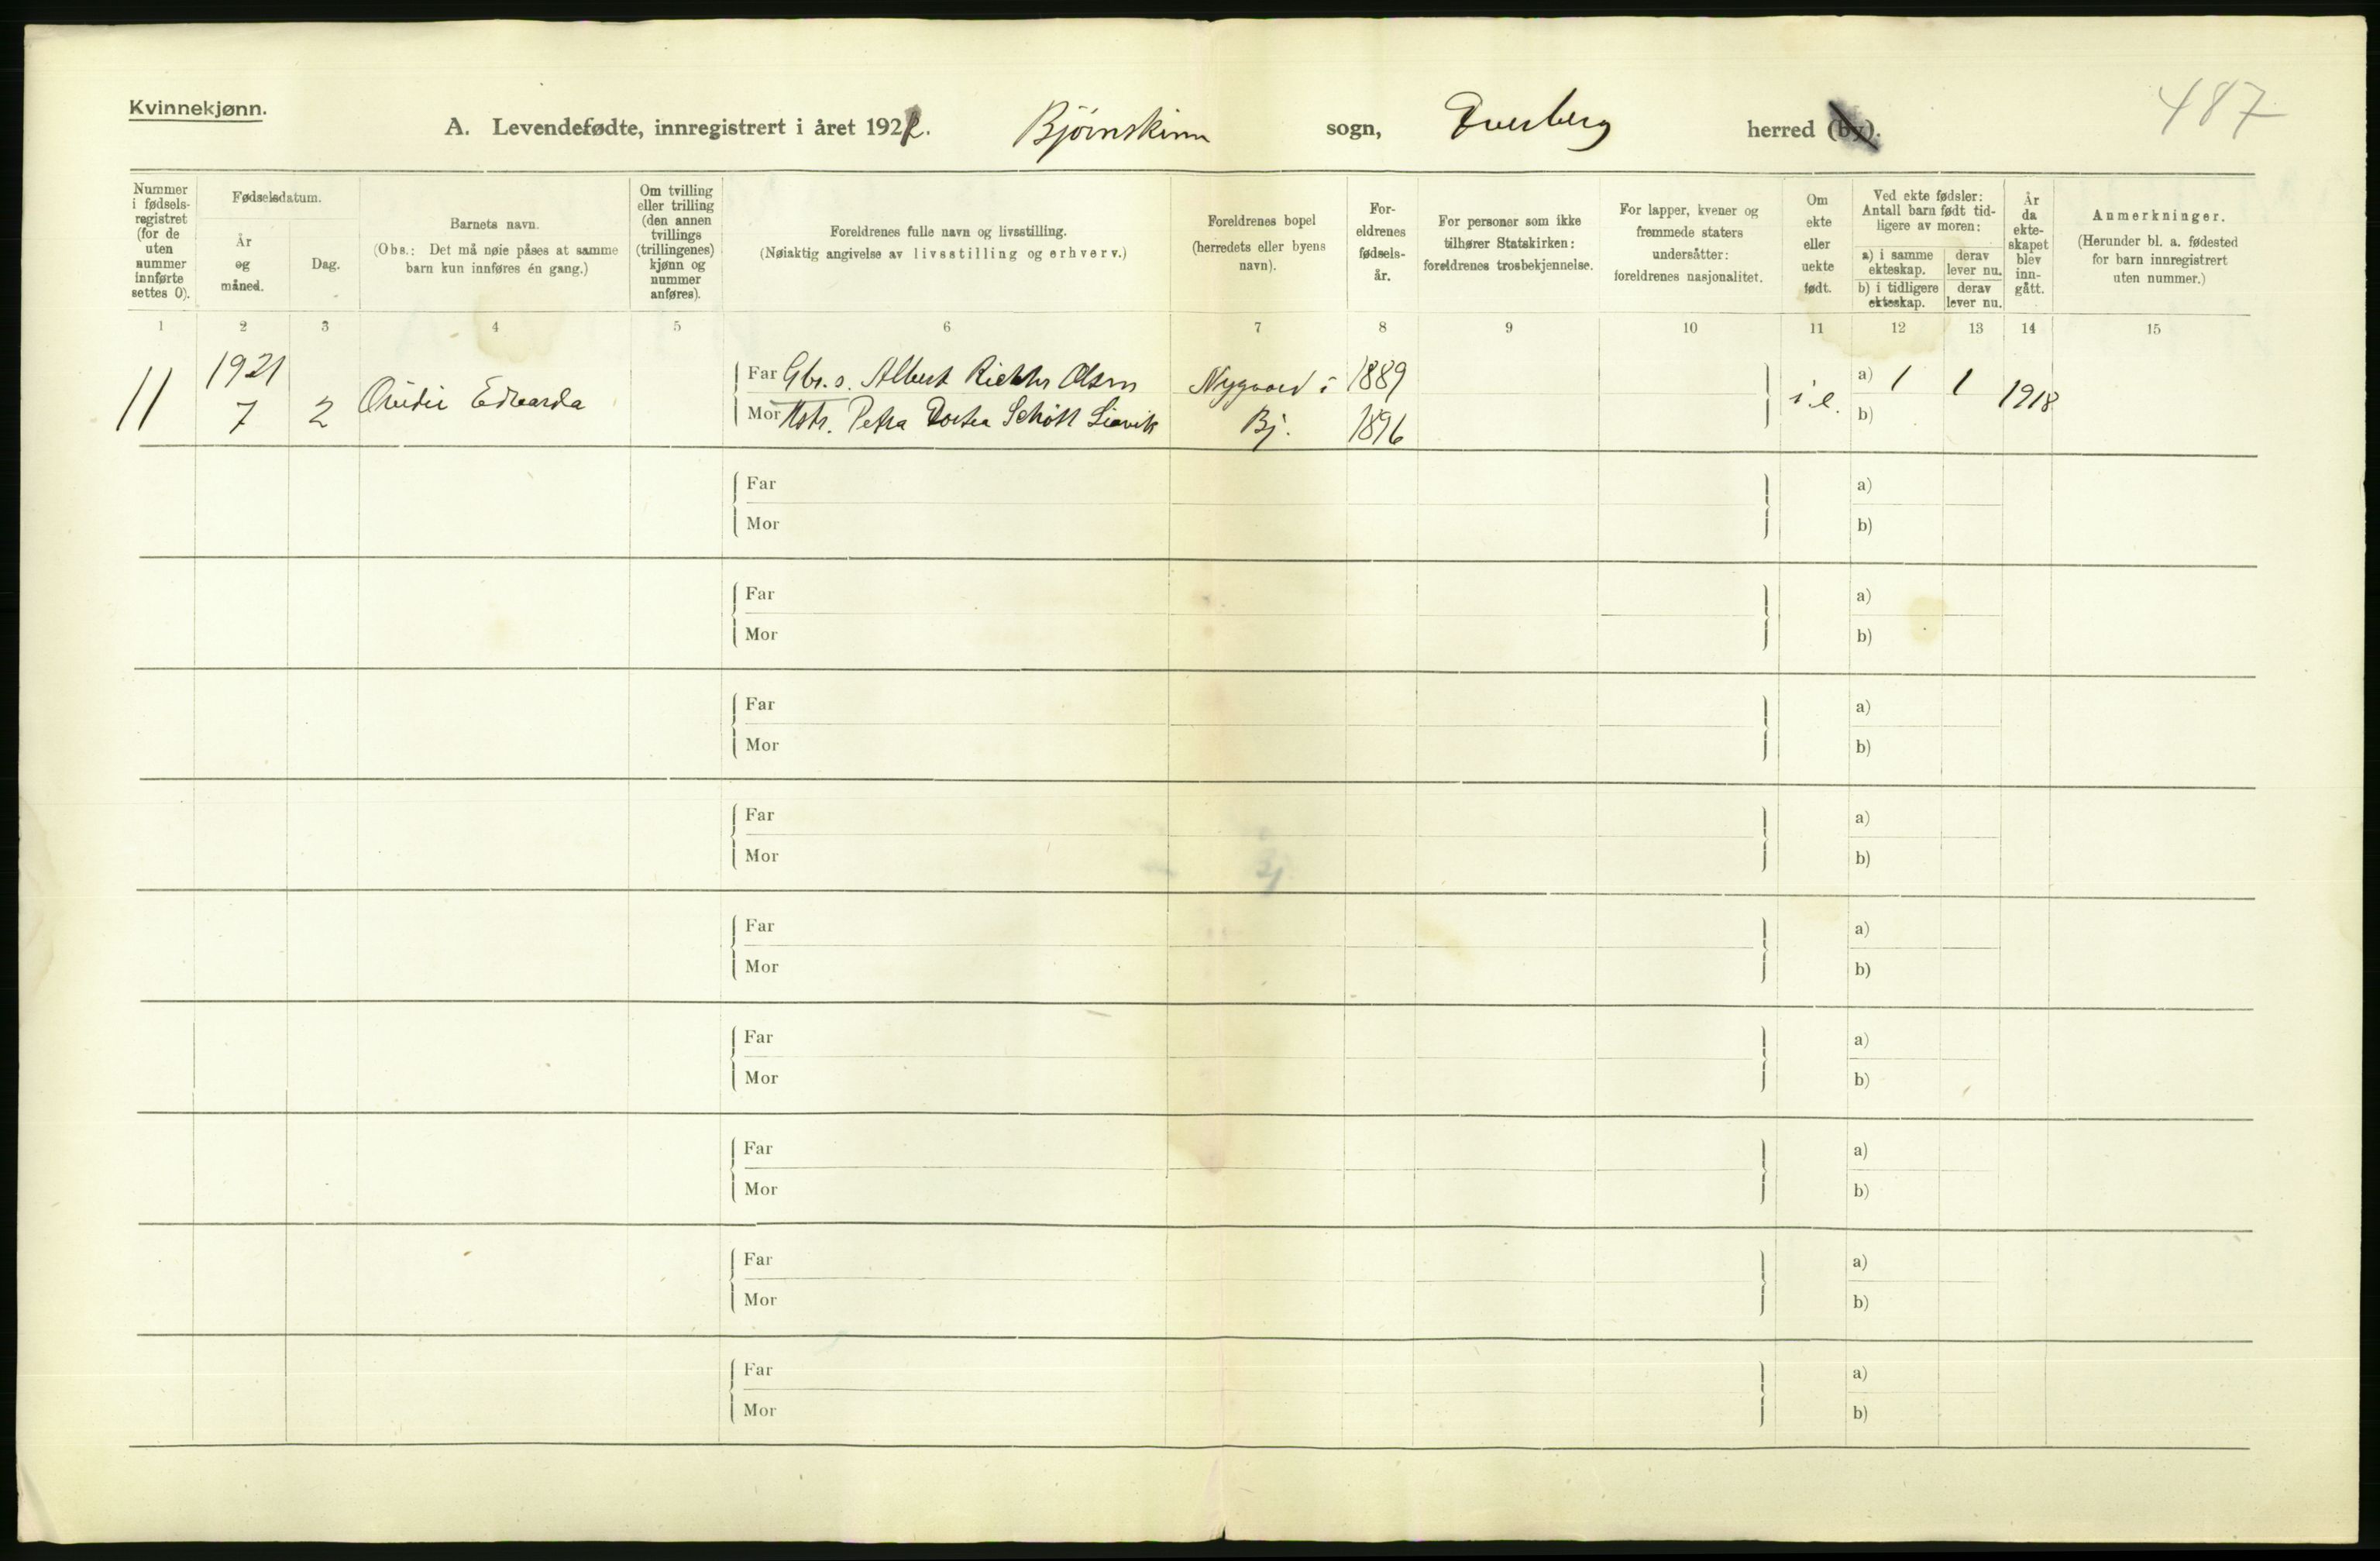 Kvinnekjønn.
A. Levendefødte, innregistrert i året 1922. Bjørnskinn sogn, Dverberg herred (by).
487
Nummer i fødsels-registret (for de uten nummer innførte settes 0).
Fødselsdatum.
År og måned.
Dag.
Barnets navn.
(Obs.: Det må nøie påses at samme barn kun innføres én gang.)
Om tvilling eller trilling (den annen tvillings (trillingenes) kjønn og nummer anføres).
Foreldrenes fulle navn og livsstilling.
(Nøiaktig angivelse av livsstilling og erhverv.)
Foreldrenes bopel (herredets eller byens navn).
For-eldrenes fødsels-år.
For personer som ikke tilhører Statskirken: foreldrenes trosbekjennelse.
For lapper, kvener og fremmede staters undersåtter: foreldrenes nasjonalitet.
Om ekte eller uekte født.
Ved ekte fødsler: Antall barn født tid-ligere av moren:
a) i samme ekteskap.
derav lever nu.
b) i tidligere ekteskap.
derav lever nu.
År da ekte-skapet blev inn-gått.
Anmerkninger.
(Herunder bl. a. fødested for barn innregistrert uten nummer.)
1 2 3 4 5 6 7 8 9 10 11 12 13 14 15
11 1921 7 2 Ovidie Edvarda
Far Gbr. s. Albert Rickter Olsen Nygaard i 1889
Mor Hstr. Petra Dortea Schött Liavik Bj. 1896
i. e. a) 1 1 1918
b)
Far a)
Mor b)
Far a)
Mor b)
Far a)
Mor b)
Far a)
Mor b)
Far a)
Mor b)
Far a)
Mor b)
Far a)
Mor b)
Far a)
Mor b)
Far a)
Mor b)